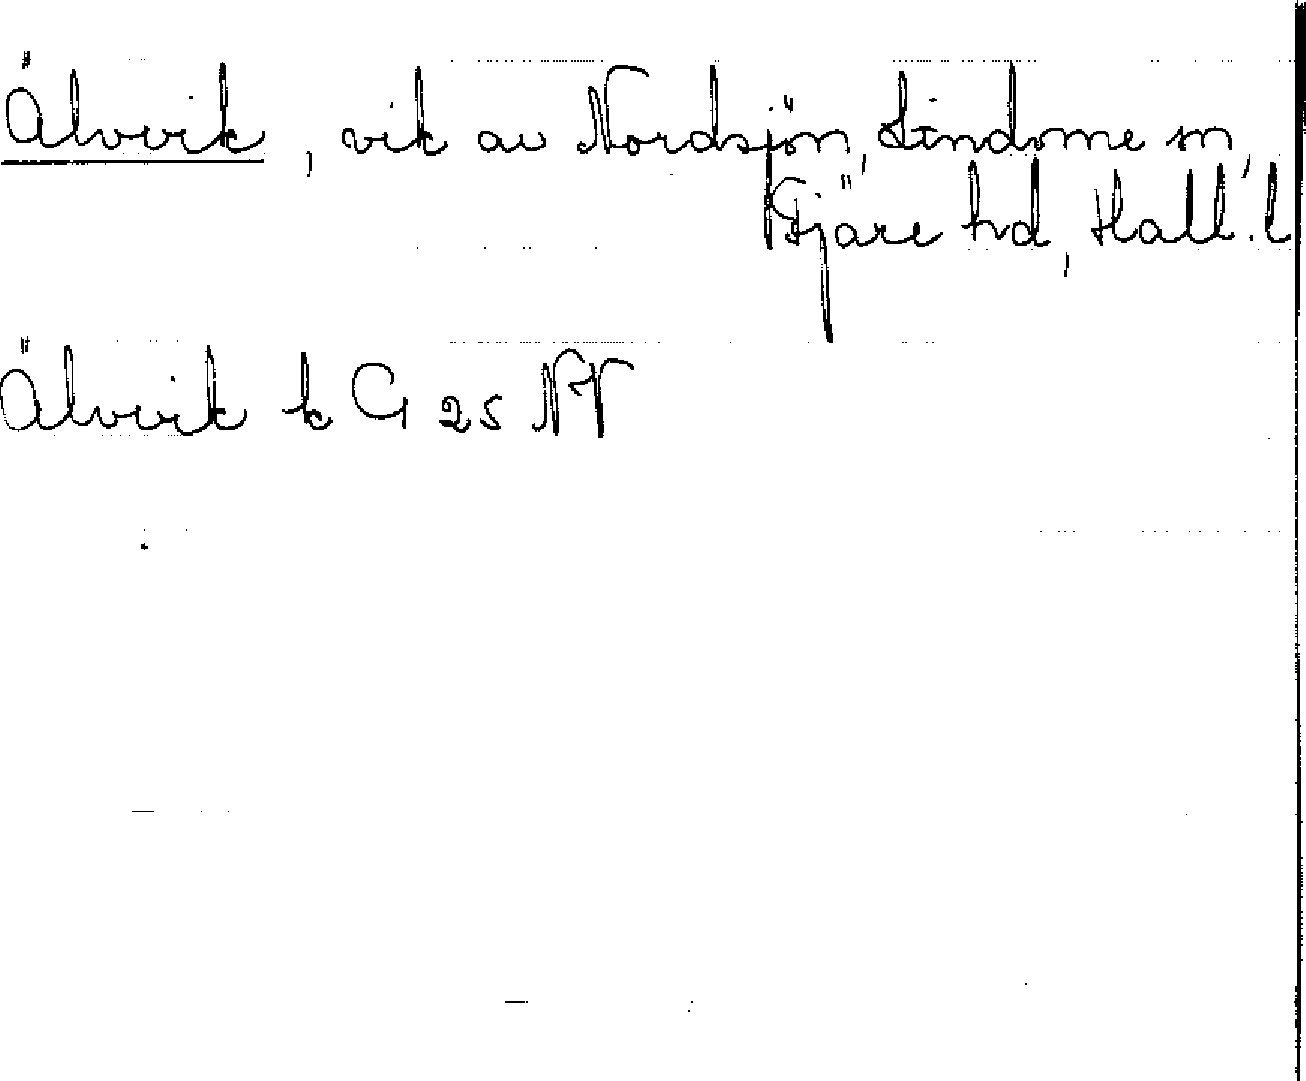 Älvvik, vik av Nordsjön, Lindome sn,
Fjäre hd, Hall. l
Älvvik k G 25 NV